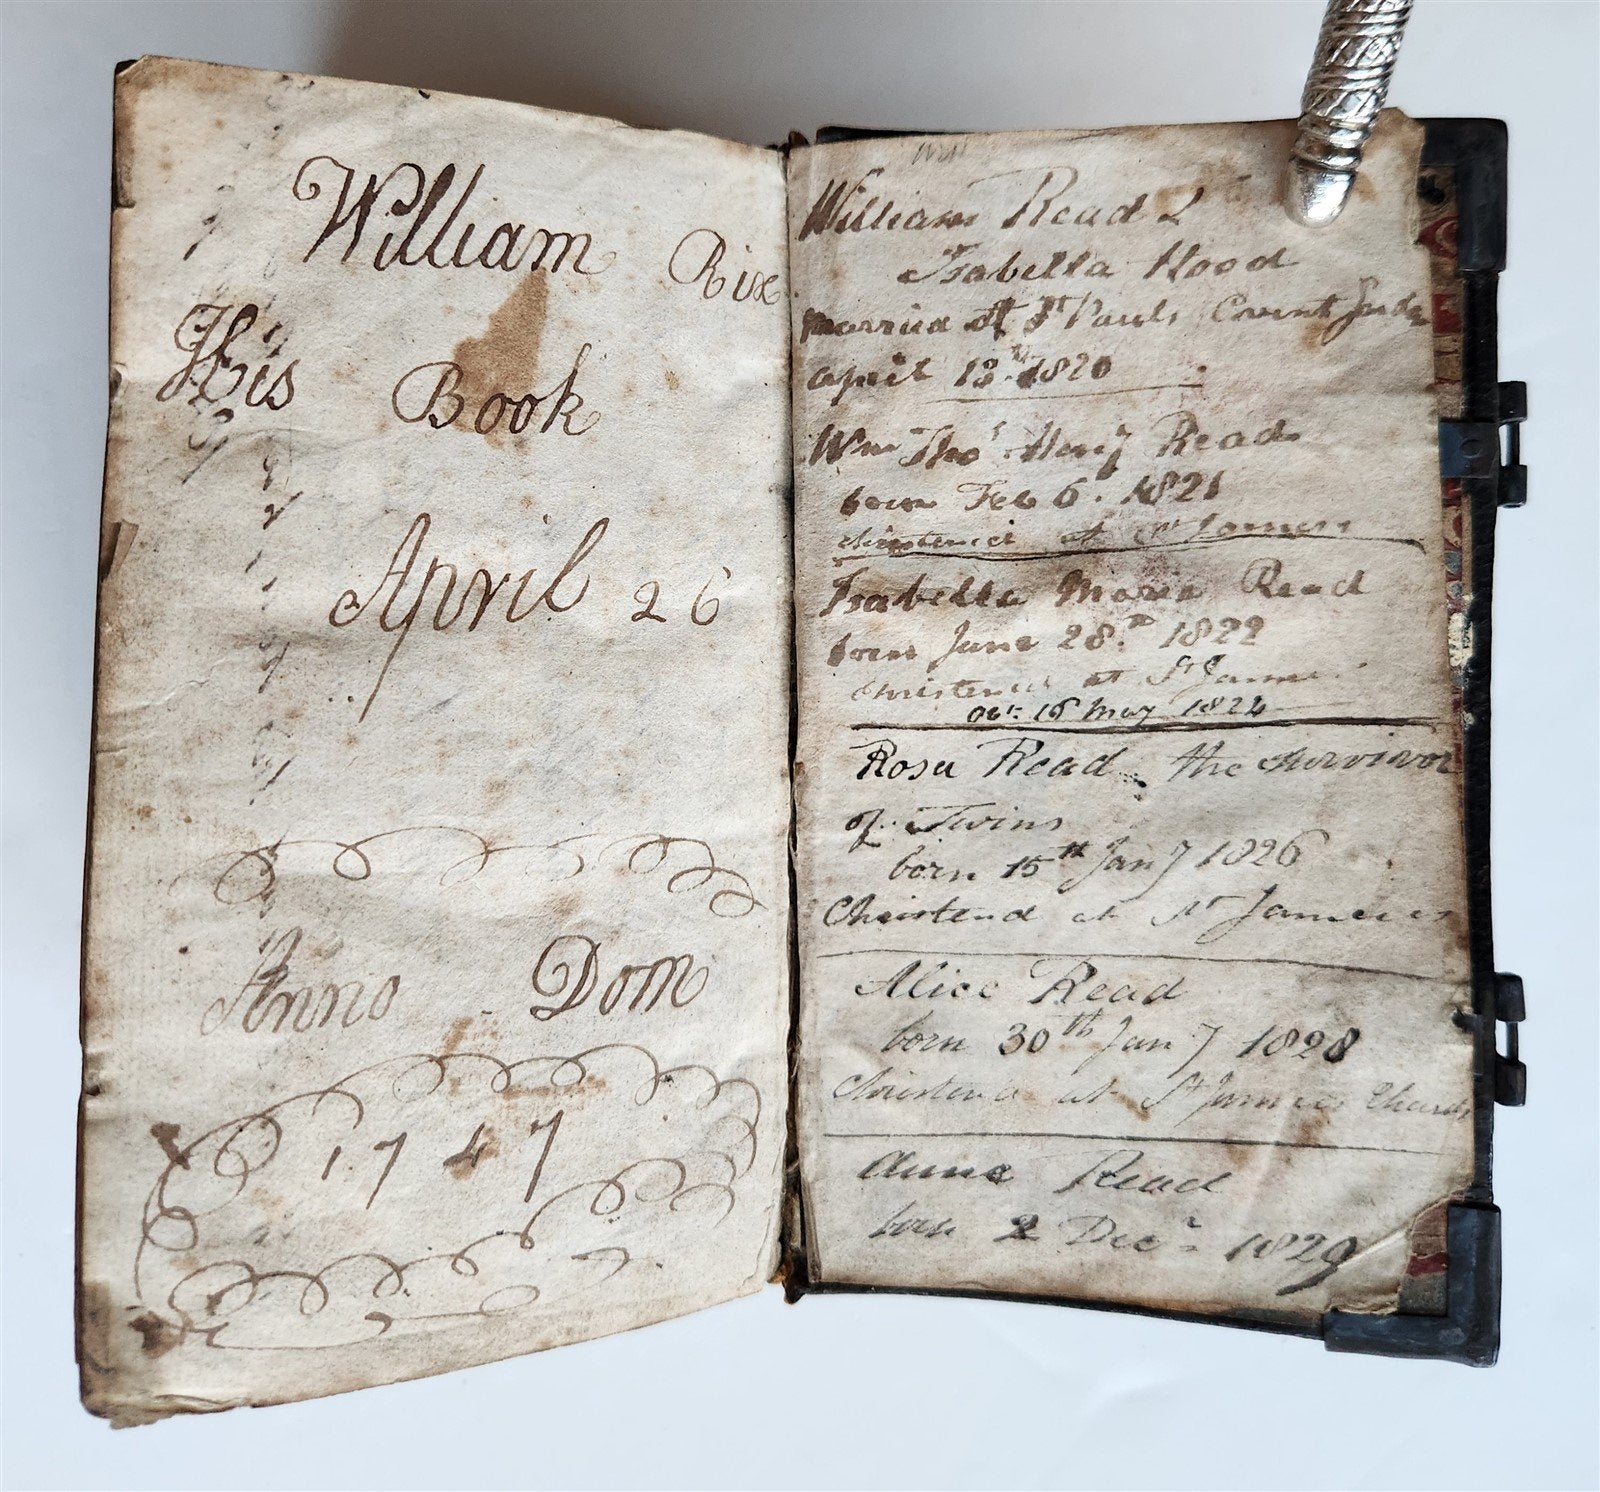 William Rix
His Book
April 26
Anno Dom
1747
William Read &
Isabella Hood
married at St Pauls Covent Garden
April 13th 1820
Wm Thos Henry Read
born Feb 6. 1821
christened at St Jamess
Isabella Maria Read
born June 28.th 1822
Christened at St James
Obt. 16 May 1824
Rosa Read the survivor
of Twins
born 15th Jany 1826
Christend at St Jameses
Alice Read
born 30th Jany 1828
Christend at St Jameses Church
Anne Read
born 2 Decr 1829